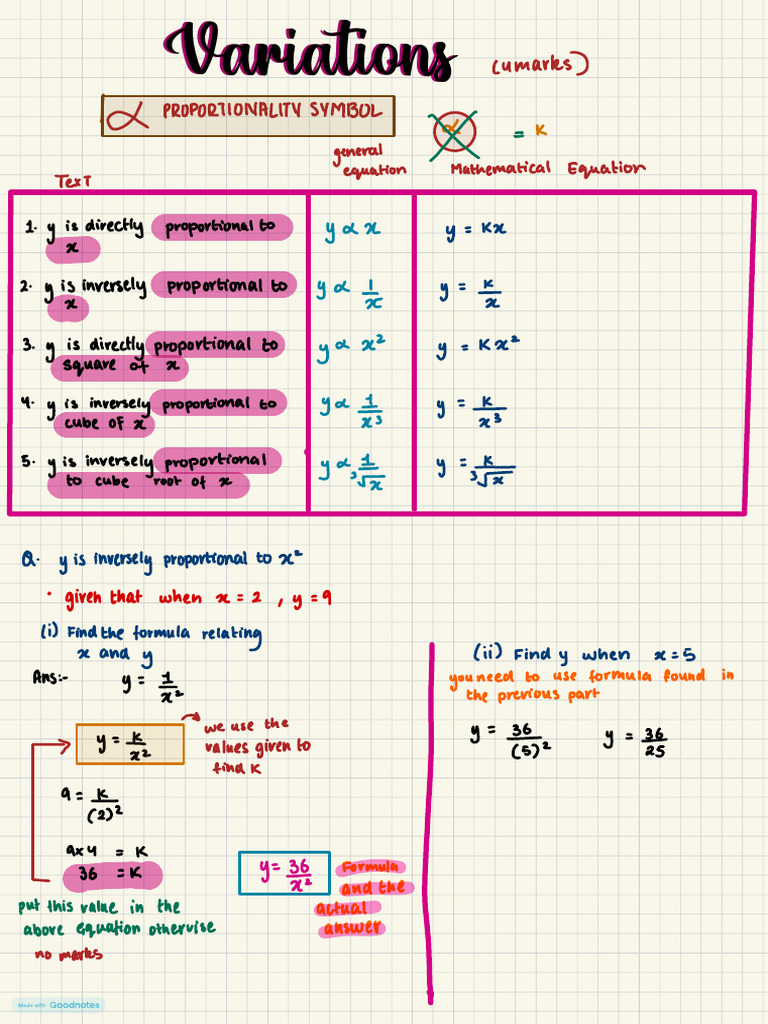 Variations (4marks)
∝ PROPORTIONALITY SYMBOL
∝ = K
general
equation
Mathematical Equation
Text
1. y is directly proportional to
x
y ∝ x
y = Kx
2. y is inversely proportional to
x
y ∝ 1/x
y = K/x
3. y is directly proportional to
square of x
y ∝ x²
y = Kx²
4. y is inversely proportional to
cube of x
y ∝ 1/x³
y = K/x³
5. y is inversely proportional
to cube root of x
y ∝ 1/³√x
y = K/³√x
Q. y is inversely proportional to x²
• given that when x = 2 , y = 9
(i) Find the formula relating
x and y
Ans:- y = 1/x²
y = K/x²
we use the
values given to
find K
9 = K/(2)²
9x4 = K
36 = K
put this value in the
above equation otherwise
no marks
y = 36/x²
Formula
and the
actual
answer
(ii) Find y when x = 5
you need to use formula found in
the previous part
y = 36/(5)² y = 36/25
Made with Goodnotes